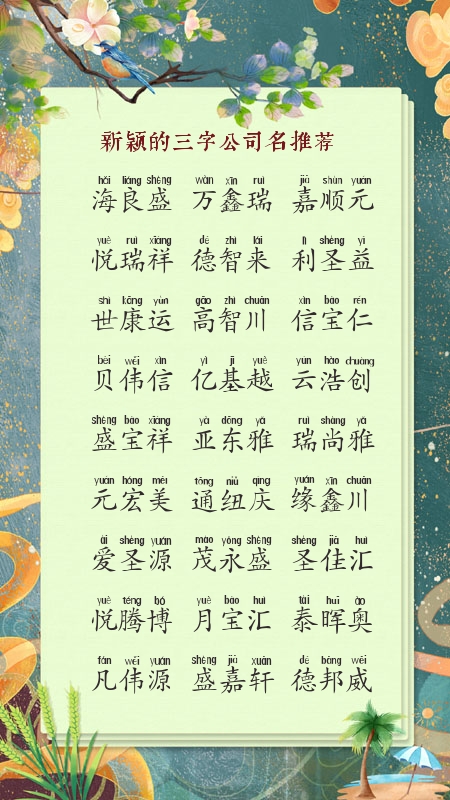 新颖的三字公司名推荐
hǎi liáng shèng wàn xīn ruì jiā shùn yuán
海良盛 万鑫瑞 嘉顺元
yuè ruì xiáng dé zhì lái lì shèng yì
悦瑞祥 德智来 利圣益
shì kāng yùn gāo zhì chuān xìn bǎo rén
世康运 高智川 信宝仁
bèi wěi xìn yì jī yuè yún hào chuàng
贝伟信 亿基越 云浩创
shèng bǎo xiáng yà dōng yǎ ruì shàng yǎ
盛宝祥 亚东雅 瑞尚雅
yuán hóng měi tōng niǔ qìng yuán xīn chuān
元宏美 通纽庆 缘鑫川
ài shèng yuán mào yǒng shèng shèng jiā huì
爱圣源 茂永盛 圣佳汇
yuè téng bó yuè bǎo huì tài huī ào
悦腾博 月宝汇 泰晖奥
fán wěi yuán shèng jiā xuān dé bāng wēi
凡伟源 盛嘉轩 德邦威